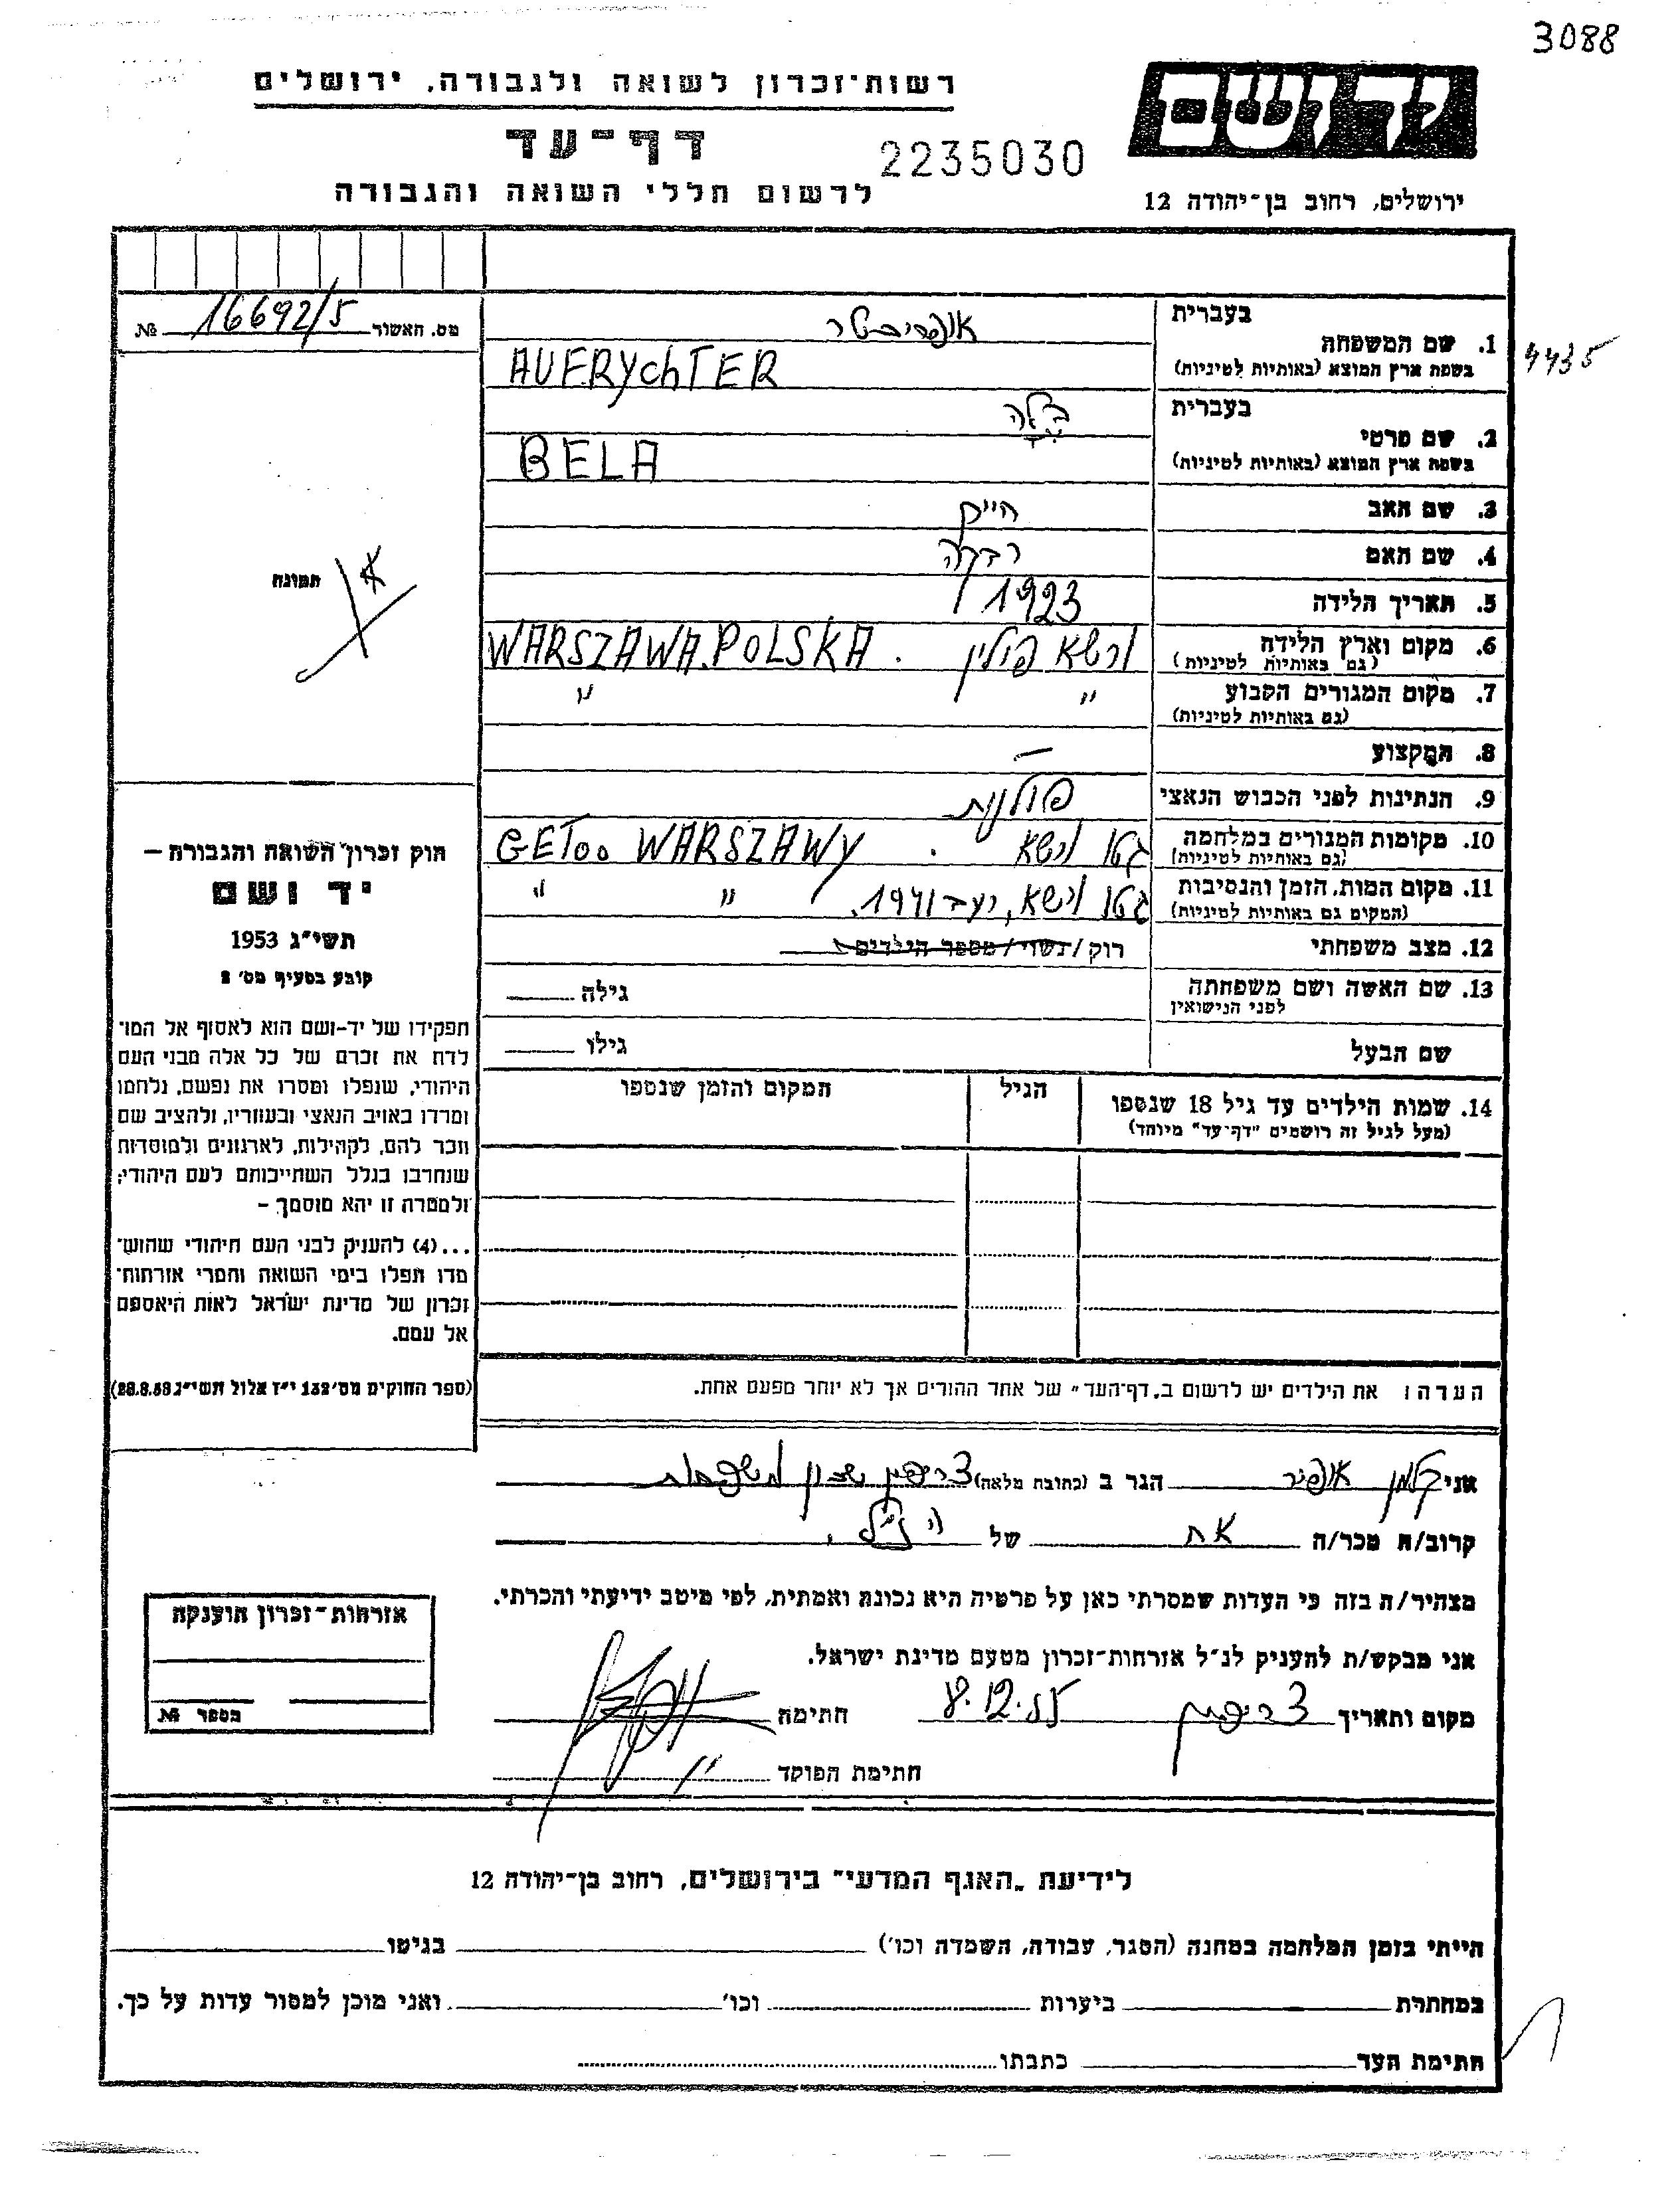 3088
רשות-זכרון לשואה ולגבורה, ירושלים
יד ושם
דף-עד
2235030
לרשום חללי השואה והגבורה
ירושלים, רחוב בן-יהודה 12
מס. האשור 16692/5 №
4435
1. שם המשפחה
בעברית אופריכטר
בשפת ארץ המוצא (באותיות לטיניות) AUFRYchTER
2. שם פרטי
בעברית בלה
בשפת ארץ המוצא (באותיות לטיניות) BELA
3. שם האב חיים
4. שם האם רבקה
5. תאריך הלידה 1923
6. מקום וארץ הלידה ורשא פולין . WARSZAWA.POLSKA
(גם באותיות לטיניות)
7. מקום המגורים הקבוע " "
(גם באותיות לטיניות)
8. המקצוע —
9. הנתינות לפני הכבוש הנאצי פולנית
10. מקומות המגורים במלחמה גטו ורשא . GEToo WARSZAWY
(גם באותיות לטיניות)
11. מקום המות, הזמן והנסיבות גטו ורשא, רעב 1941. " "
(המקום גם באותיות לטיניות)
12. מצב משפחתי רוק/נשוי/מספר הילדים
13. שם האשה ושם משפחתה גילה
לפני הנישואין
שם הבעל גילו
14. שמות הילדים עד גיל 18 שנספו הגיל המקום והזמן שנספו
(מעל לגיל זה רושמים "דף-עד" מיוחד)
תמונה
חוק זכרון השואה והגבורה –
יד ושם
תשי"ג 1953
קובע בסעיף מס' 2
תפקידו של יד-ושם הוא לאסוף אל המו־
לדת את זכרם של כל אלה מבני העם
היהודי, שנפלו ומסרו את נפשם, נלחמו
ומרדו באויב הנאצי ובעוזריו, ולהציב שם
וזכר להם, לקהילות, לארגונים ולמוסדות
שנחרבו בגלל השתייכותם לעם היהודי;
ולמטרה זו יהא מוסמך –
...(4) להעניק לבני העם היהודי שהוש־
מדו ונפלו בימי השואה והמרי אזרחות־
זכרון של מדינת ישראל לאות היאספם
אל עמם.
(ספר החוקים מס' 132 י"ז אלול תשי"ג 28.8.53)
הערה: את הילדים יש לרשום ב„דף-העד" של אחד ההורים אך לא יותר מפעם אחת.
אני קלמן אופיר הגר ב (כתובת מלאה) צריפין שכון משפחות
קרוב/ה מכר/ה אח של הנ"ל.
מצהיר/ה בזה כי העדות שמסרתי כאן על פרטיה היא נכונה ואמתית, לפי מיטב ידיעתי והכרתי.
אני מבקש/ת להעניק לנ"ל אזרחות-זכרון מטעם מדינת ישראל.
מקום ותאריך צריפין 8.12.55 חתימה
חתימת הפוקד
אזרחות-זכרון הוענקה
מספר №
לידיעת „האגף המדעי" בירושלים, רחוב בן-יהודה 12
הייתי בזמן המלחמה במחנה (הסגר, עבודה, השמדה וכו') בגיטו
במחתרת ביערות וכו' ואני מוכן למסור עדות על כך.
חתימת העד כתבתו